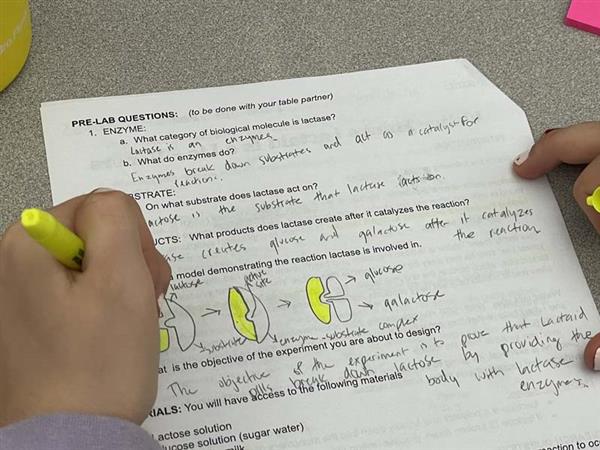 PRE-LAB QUESTIONS: (to be done with your table partner)
1. ENZYME:
a. What category of biological molecule is lactase?
lactase is an enzymes
b. What do enzymes do?
Enzymes break down substrates and act as a catalyst for
reactions.
STRATE:
On what substrate does lactase act on?
actose is the substrate that lactase acts on.
UCTS: What products does lactase create after it catalyzes the reaction?
ase creates glucose and galactose after it catalyzes
the reaction
model demonstrating the reaction lactase is involved in.
lactose
active
site
→ glucose
→ galactose
substrate
enzyme-substrate complex
at is the objective of the experiment you are about to design?
The objective of the experiment is to prove that Lactaid
pills break down lactose by providing the
body with lactase
enzymes.
RIALS: You will have access to the following materials
Lactose solution
ucose solution (sugar water)
milk
action to oc